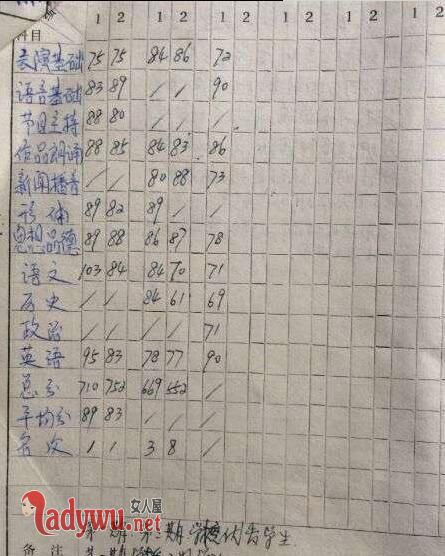 科目 1 2 1 2 1 2 1 2 1 2 1 2
表演基础 75 75 84 86 72
语音基础 83 89 / / 90
节目主持 88 80 / / /
作品朗诵 88 85 84 83 86
新闻播音 / / 80 88 73
形体 89 82 89 / /
思想品德 89 88 86 87 78
语文 103 84 84 70 71
历史 / / 84 61 69
政治 / / / / 71
英语 95 83 78 77 90
总分 710 752 669 552 /
平均分 89 83 / / /
名次 1 1 3 8 /
女人屋
ladywu.net
第二期
学生
备注